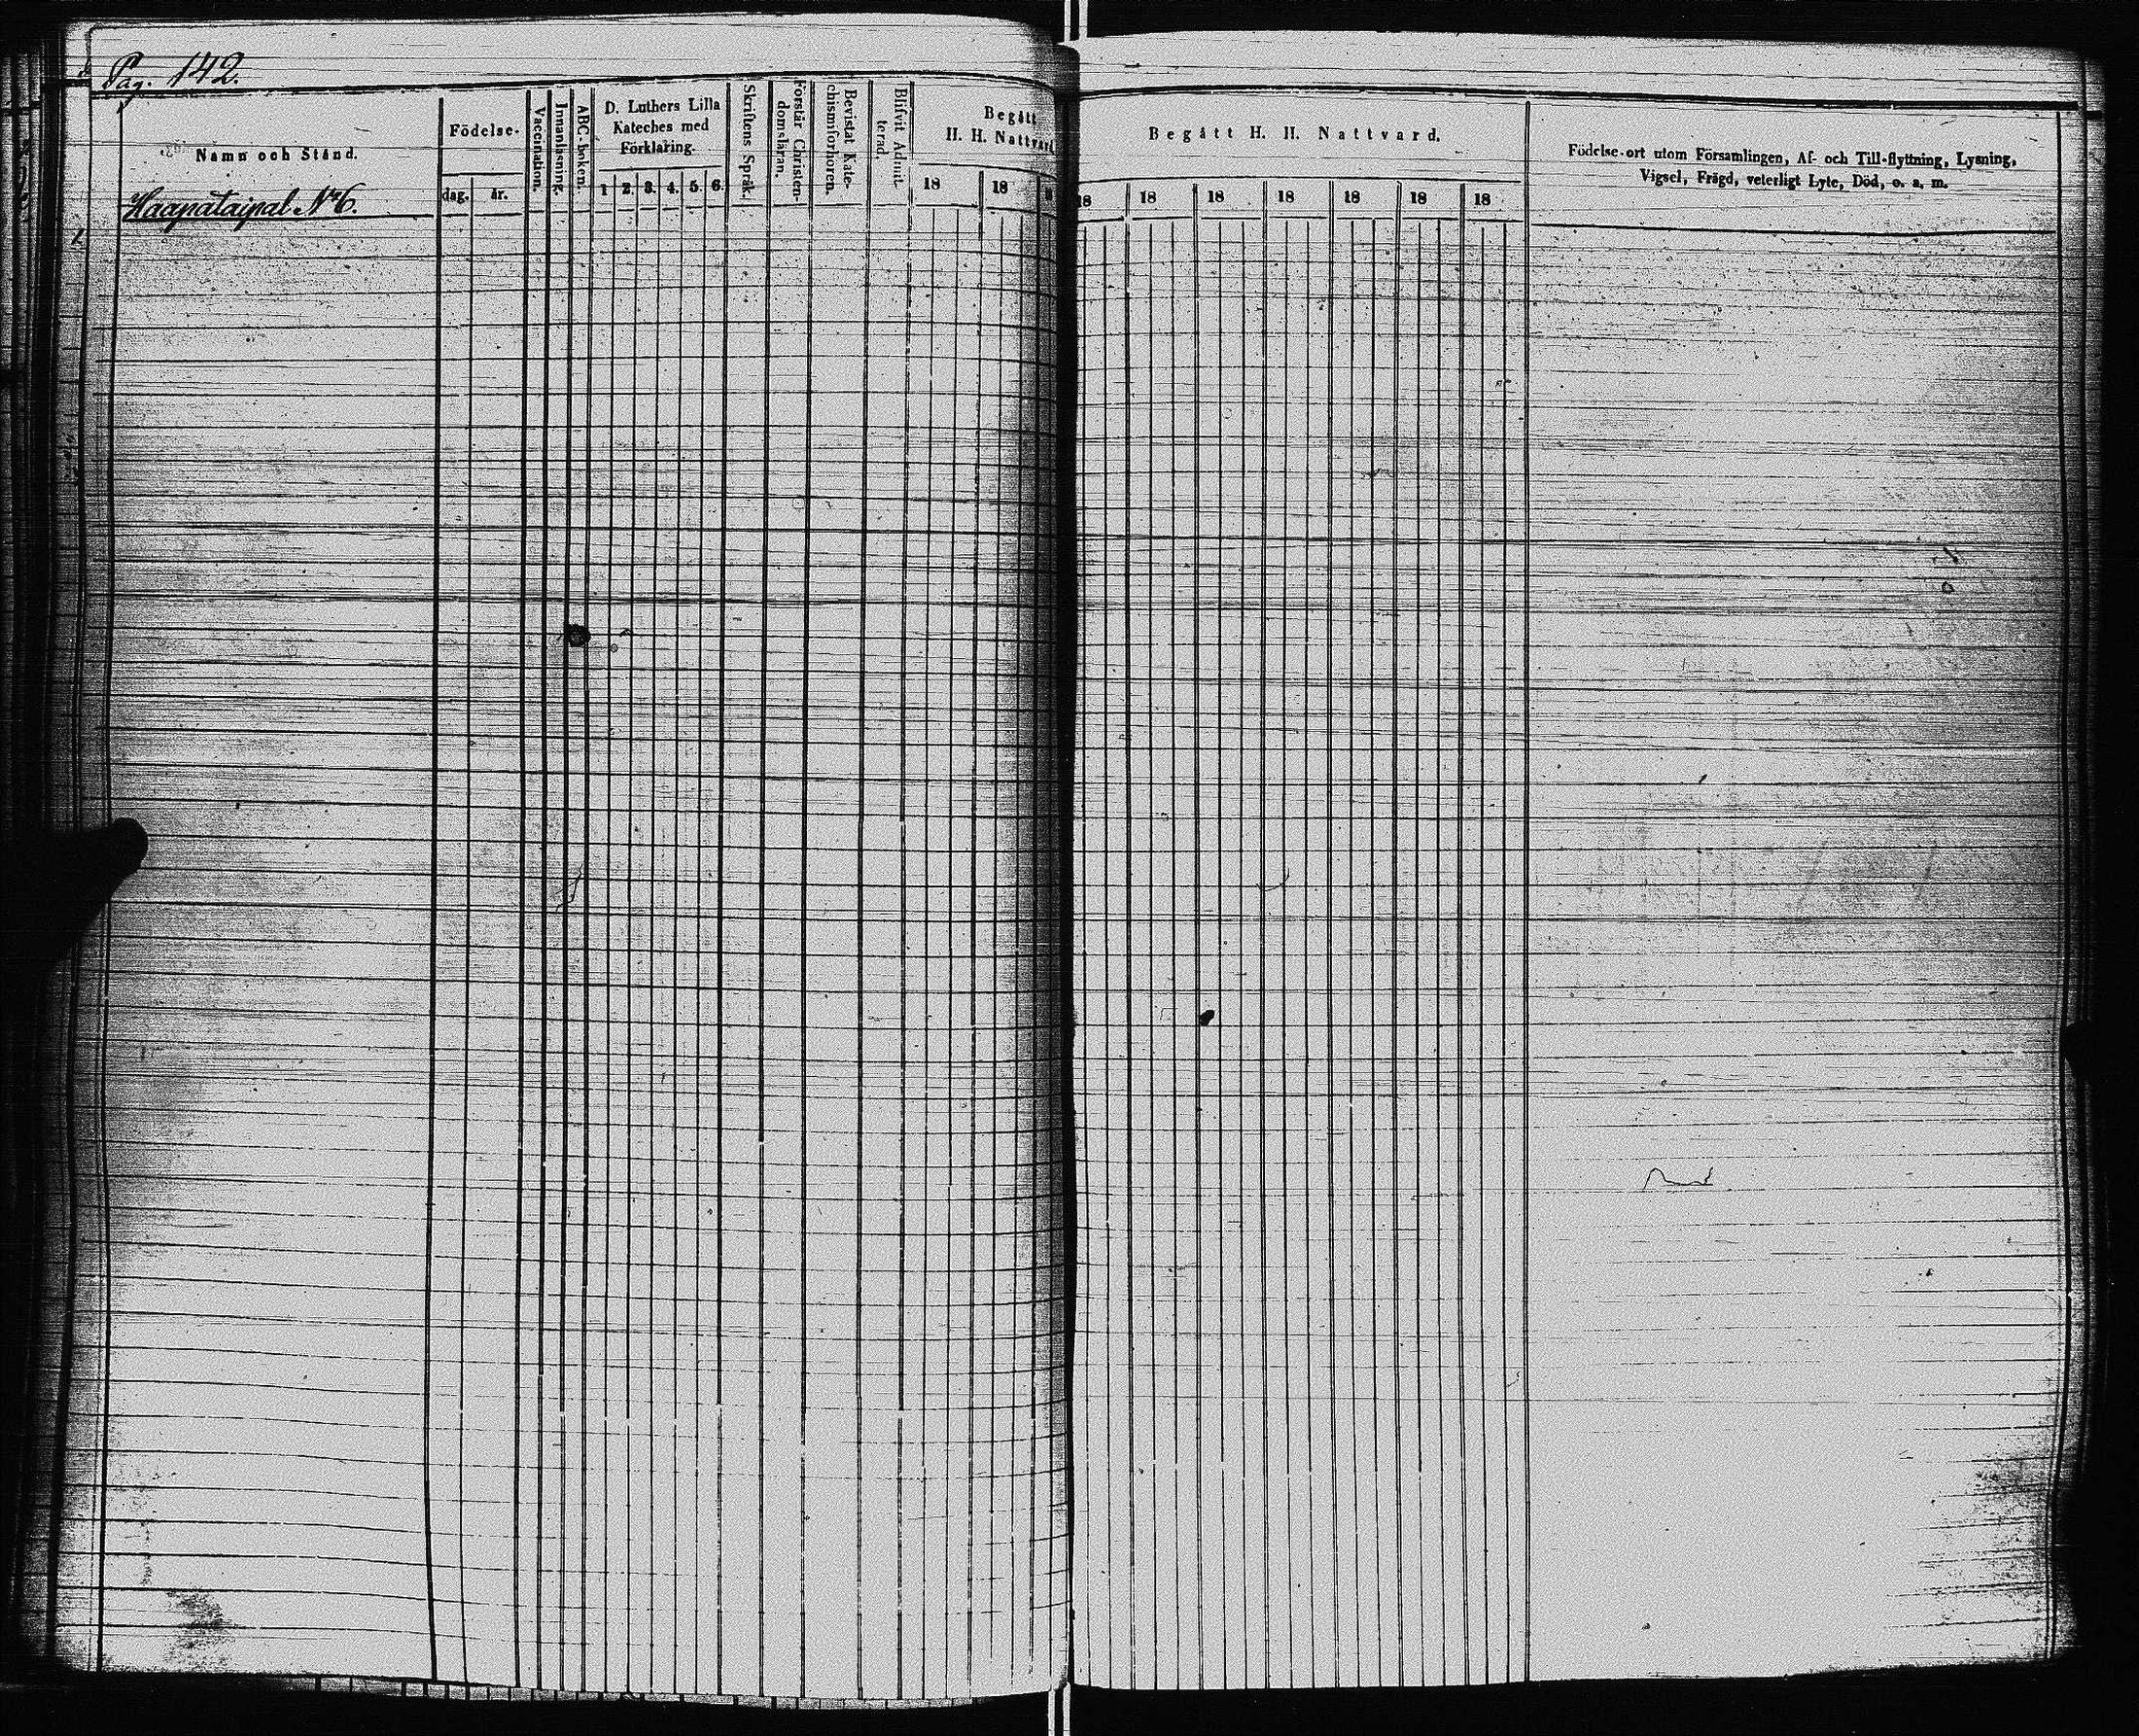 Pag. 142.
Namn och Stånd.
Haapataipal No 6.
Födelse-
dag. år.
Vaccination.
Innanläsning.
ABC-boken.
D. Luthers Lilla
Kateches med
Förklaring.
1 2. 3. 4. 5. 6.
Skriftens Språk.
Förstår Christen-
domsläran.
Bevistat Kate-
chismiförhören.
Blifvit Admit-
terad.
Begått
H. H. Nattvard.
18 18
Begått H. H. Nattvard.
18 18 18 18 18 18 18
Födelse-ort utom Församlingen, Af- och Till-flyttning, Lysning,
Vigsel, Frägd, veterligt Lyte, Död, o. s. m.